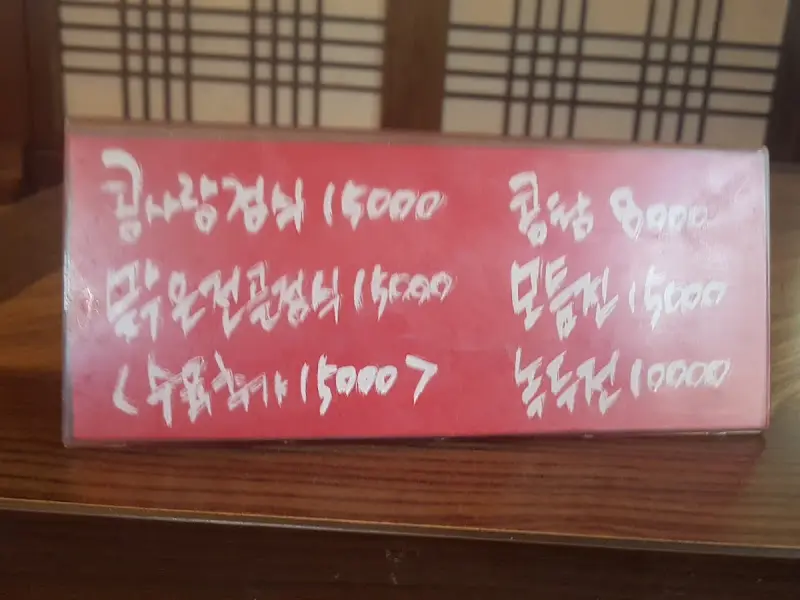 콩사랑정식 15000
15000
<수육추가 15000>
콩탕 8000
모듬전 15000
녹두전 10000